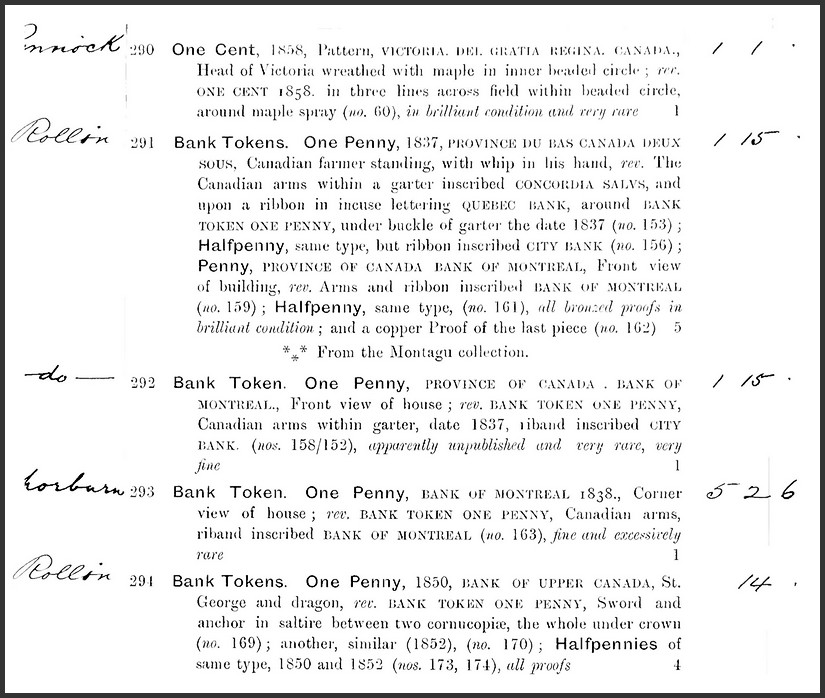 290 One Cent, 1858, Pattern, VICTORIA. DEI. GRATIA REGINA. CANADA., 1 1 .
Head of Victoria wreathed with maple in inner beaded circle ; rev.
ONE CENT 1858. in three lines across field within beaded circle,
around maple spray (no. 60), in brilliant condition and very rare 1
Rollin 291 Bank Tokens. One Penny, 1837, PROVINCE DU BAS CANADA DEUX 1 15 .
SOUS, Canadian farmer standing, with whip in his hand, rev. The
Canadian arms within a garter inscribed CONCORDIA SALVS, and
upon a ribbon in incuse lettering QUEBEC BANK, around BANK
TOKEN ONE PENNY, under buckle of garter the date 1837 (no. 153) ;
Halfpenny, same type, but ribbon inscribed CITY BANK (no. 156) ;
Penny, PROVINCE OF CANADA BANK OF MONTREAL, Front view
of building, rev. Arms and ribbon inscribed BANK OF MONTREAL
(no. 159) ; Halfpenny, same type, (no. 161), all bronzed proofs in
brilliant condition ; and a copper Proof of the last piece (no. 162) 5
*** From the Montagu collection.
do — 292 Bank Token. One Penny, PROVINCE OF CANADA . BANK OF 1 15 .
MONTREAL., Front view of house ; rev. BANK TOKEN ONE PENNY,
Canadian arms within garter, date 1837, riband inscribed CITY
BANK. (nos. 158/152), apparently unpublished and very rare, very
fine 1
293 Bank Token. One Penny, BANK OF MONTREAL 1838., Corner 5 2 6
view of house ; rev. BANK TOKEN ONE PENNY, Canadian arms,
riband inscribed BANK OF MONTREAL (no. 163), fine and excessively
rare 1
Rollin 294 Bank Tokens. One Penny, 1850, BANK OF UPPER CANADA, St. 14 .
George and dragon, rev. BANK TOKEN ONE PENNY, Sword and
anchor in saltire between two cornucopiæ, the whole under crown
(no. 169) ; another, similar (1852), (no. 170) ; Halfpennies of
same type, 1850 and 1852 (nos. 173, 174), all proofs 4